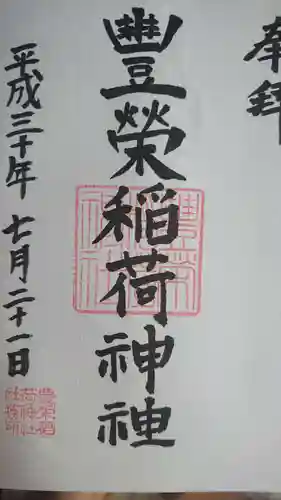 奉拝
豐榮稲荷神社
平成三十年七月二十一日